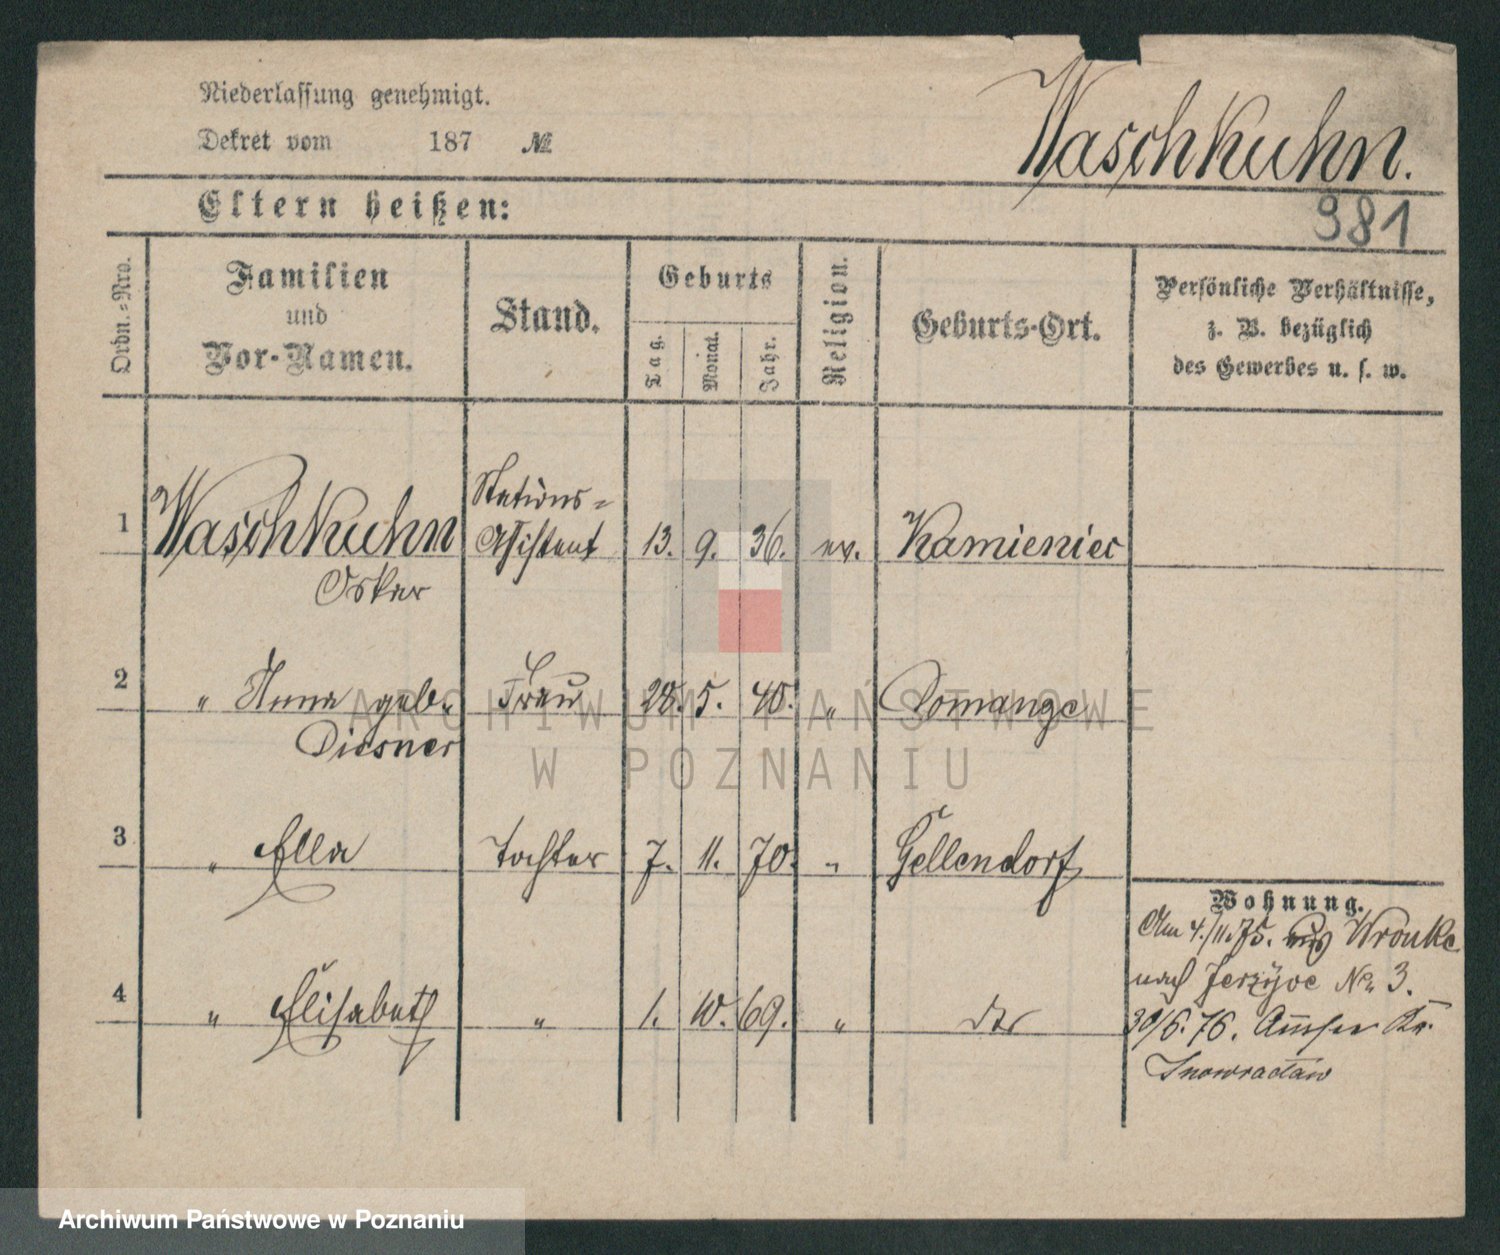 Niederlassung genehmigt.
Dekret vom 187 №
Waschkuhn.
981
Eltern heißen:
Ordn.-Nro.
Familien
und
Vor-Namen.
Stand.
Geburts
Tag.
Monat.
Jahr.
Religion.
Geburts-Ort.
Persönliche Verhältnisse,
z. B. bezüglich
des Gewerbes u. s. w.
1 Waschkuhn Stations= 13. 9. 36. ev. Kamieniec
Oskar Assistent
2 " Anna geb. Frau 28. 5. 40. " Domange
Diesner
3 " Ella Tochter 7. 11. 70. " Gellendorf
4 " Elisabeth " 1. 10. 69. " dto
Wohnung.
Am 4./11.75. aus Wronke
nach Jerzyce No. 3.
30/6.76. Amsee Kr.
Inowraclaw
ARCHIWUM PAŃSTWOWE
W POZNANIU
Archiwum Państwowe w Poznaniu